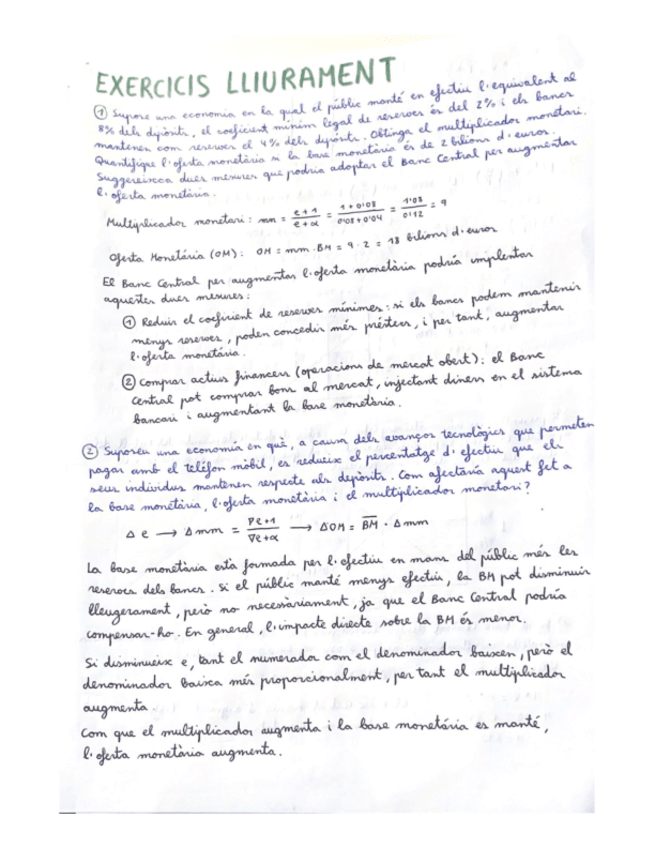 EXERCICIS LLIURAMENT
① Supose una economia en la qual el públic manté en efectiu l'equivalent al
8% dels dipòsits, el coeficient mínim legal de reserves és del 2% i els bancs
mantenen com reserves el 4% dels dipòsits. Obtinga el multiplicador monetari.
Quantifique l'oferta monetària si la base monetària és de 2 bilions d'euros.
Suggereixca dues mesures que podria adoptar el Banc Central per augmentar
l'oferta monetària.
Multiplicador monetari: mm = e+1/e+α = 1+0'08/0'08+0'04 = 1'08/0'12 = 9
Oferta Monetària (OM): OM = mm · BM = 9 · 2 = 18 bilions d'euros
El Banc Central per augmentar l'oferta monetària podria implentar
aquestes dues mesures:
① Reduir el coeficient de reserves mínimes: si els bancs podem mantenir
menys reserves, poden concedir més préstecs, i per tant, augmentar
l'oferta monetària.
② Comprar actius financers (operacions de mercat obert): el Banc
Central pot comprar bons al mercat, injectant diners en el sistema
bancari i augmentant la base monetària.
② Suposeu una economia en què, a causa dels avanços tecnològics que permeten
pagar amb el telèfon mòbil, es redueix el percentatge d'efectiu que els
seus individus mantenen respecte als dipòsits. Com afectaria aquest fet a
la base monetària, l'oferta monetària i el multiplicador monetari?
Δ e → Δ mm = ∇e+1/∇e+α → ΔOM = BM · Δ mm
La base monetària està formada per l'efectiu en mans del públic més les
reserves dels bancs. Si el públic manté menys efectiu, la BM pot disminuir
lleugerament, però no necessàriament, ja que el Banc Central podria
compensar-ho. En general, l'impacte directe sobre la BM és menor.
Si disminueix e, tant el numerador com el denominador baixen, però el
denominador baixa més proporcionalment, per tant el multiplicador
augmenta.
Com que el multiplicador augmenta i la base monetària es manté,
l'oferta monetària augmenta.